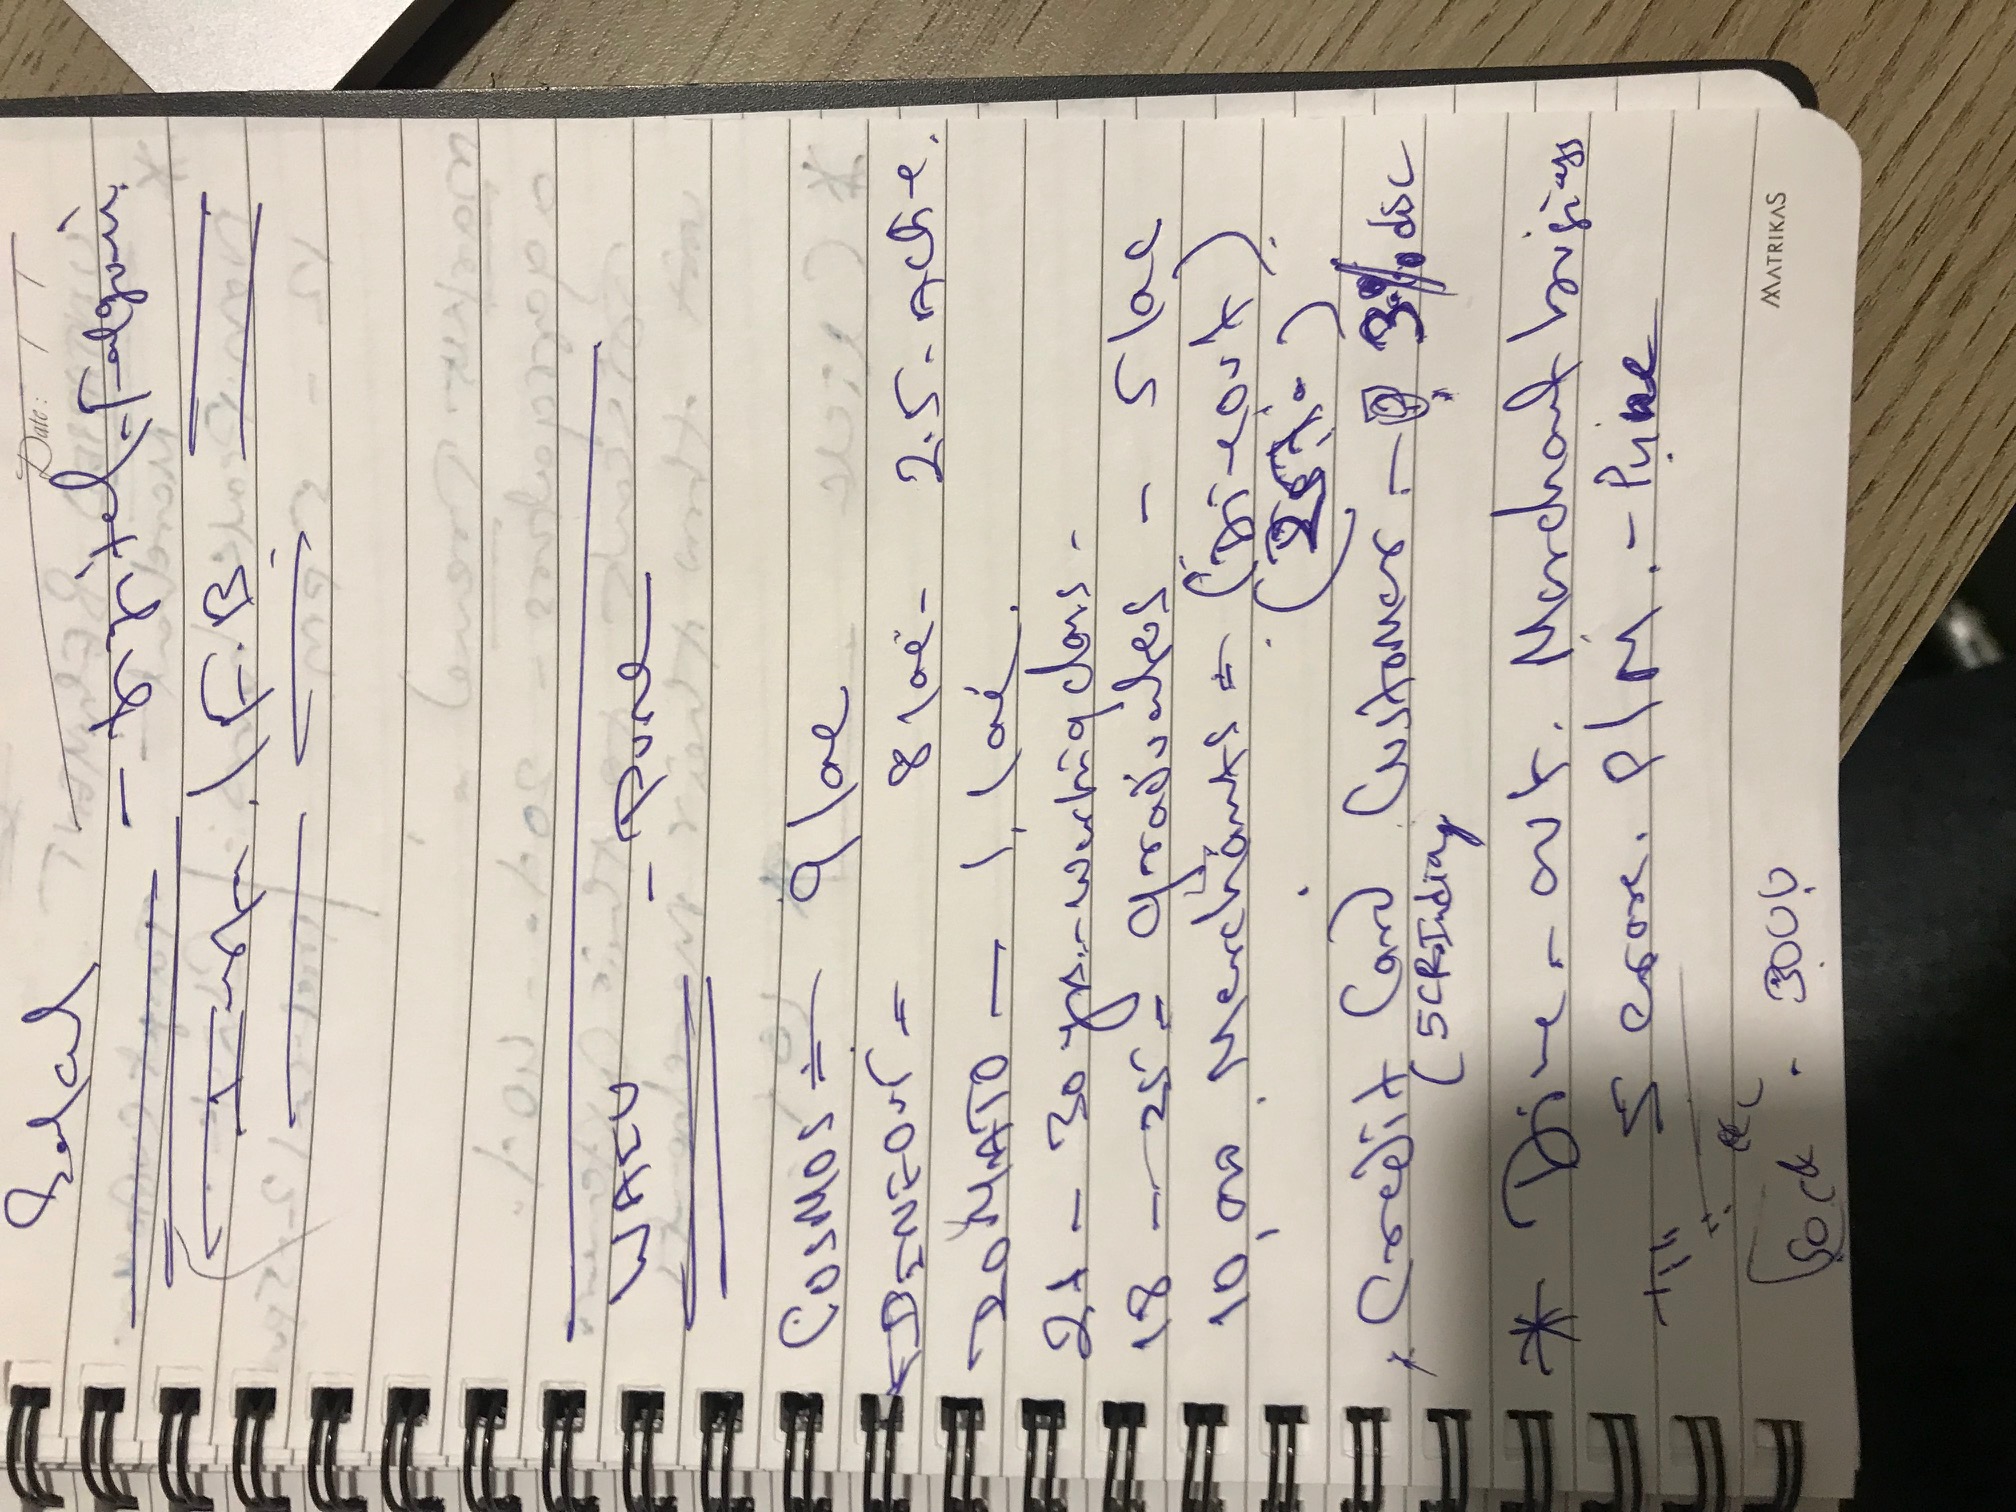 Date: / /
- Digital - Falguni.
Insta. / F.B.
WAEU - Pune
COSMOS = 9 lac
DINEOUT = 8 lac - 2.5 - Active.
ZOMATO — 1, lac.
21 - 30 yrs. - working class -
18 - 25 - graduates - 5 lac
10,000 Merchants = (Dineout)
(25%)
Credit Card Customer - 3% disc
(5CR. India)
* Dine - out. Merchant business
5 crore. P/M. - Pune
- 3000
MATRIKAS